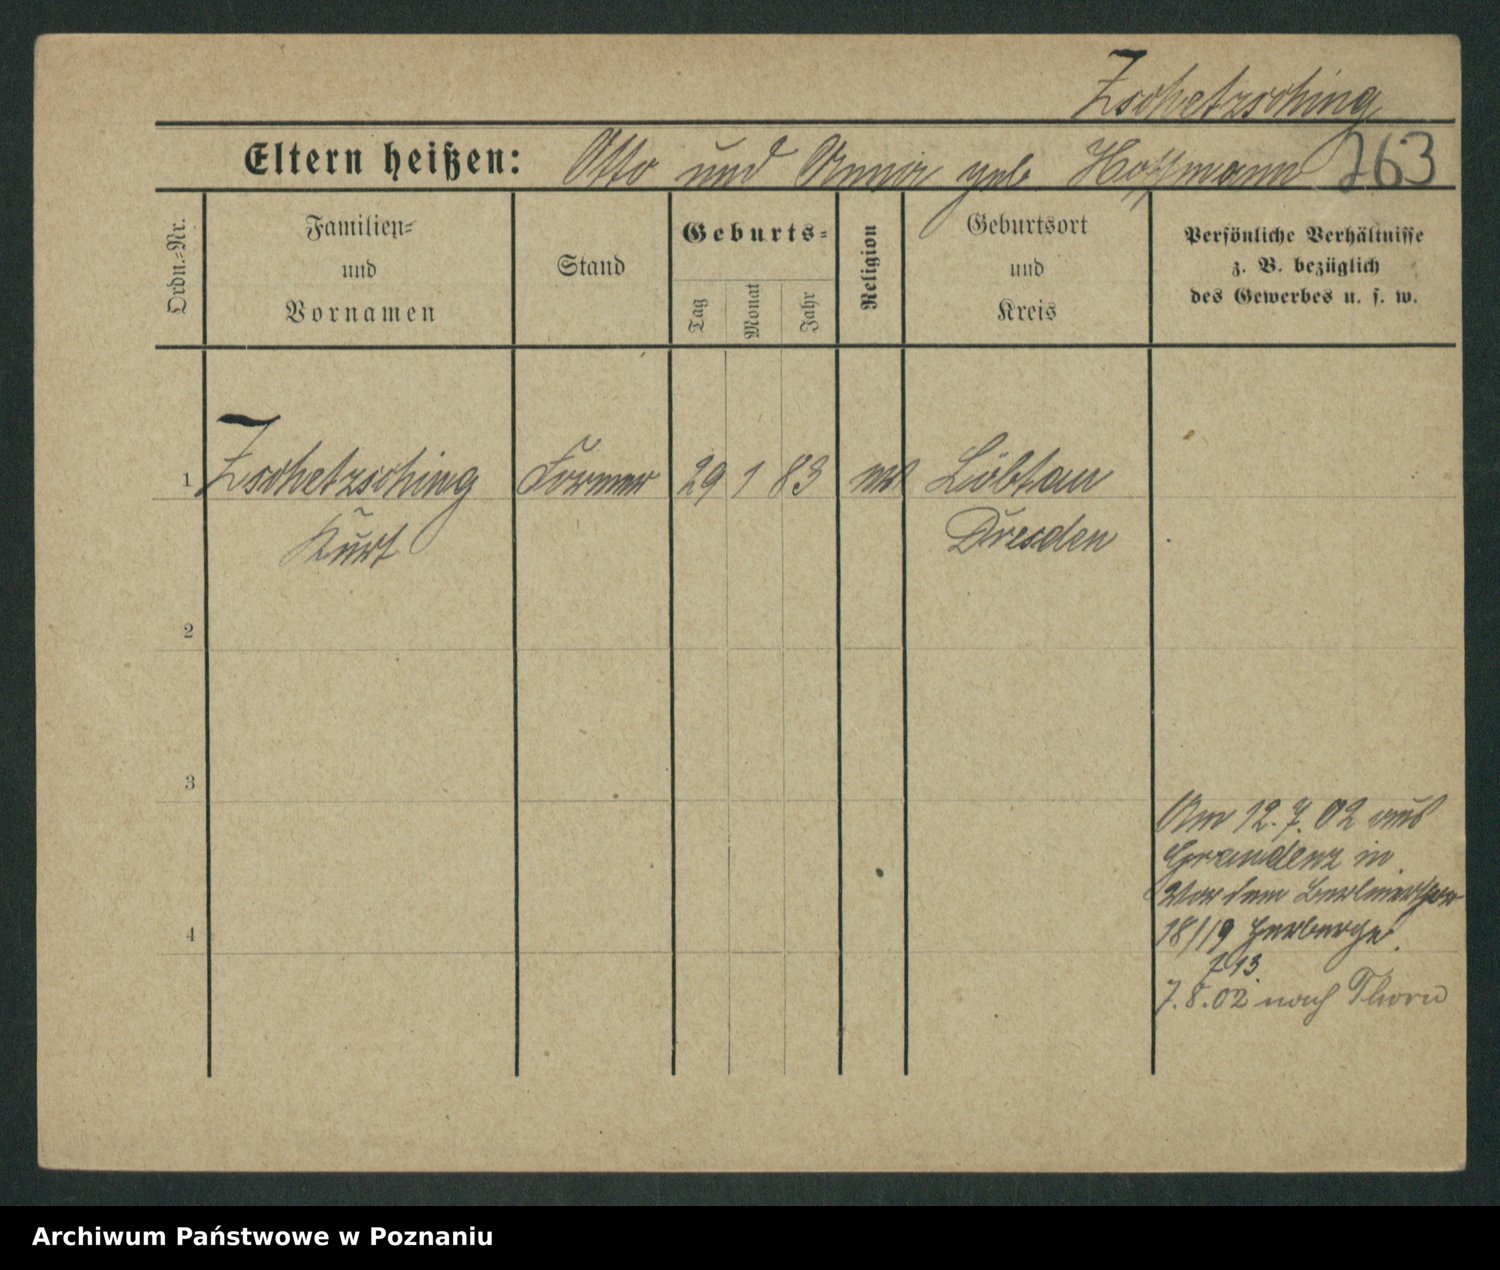 Zschetzsching
Eltern heißen: Otto und Anna geb Hoffmann 263
Ordn.=Nr.
Familien=
und
Vornamen
Stand
Geburts=
Tag
Monat
Jahr
Religion
Geburtsort
und
Kreis
Persönliche Verhältnisse
z. B. bezüglich
des Gewerbes u. s. w.
1 Zschetzsching Former 29 1 83 ev Löbtau
Kurt Dresden
2
3
Am 12.7.02 aus
Graudenz in
Vor dem Berlinerthor
4
18/19 Herberge.
7.8.02 nach Thorn
Archiwum Państwowe w Poznaniu